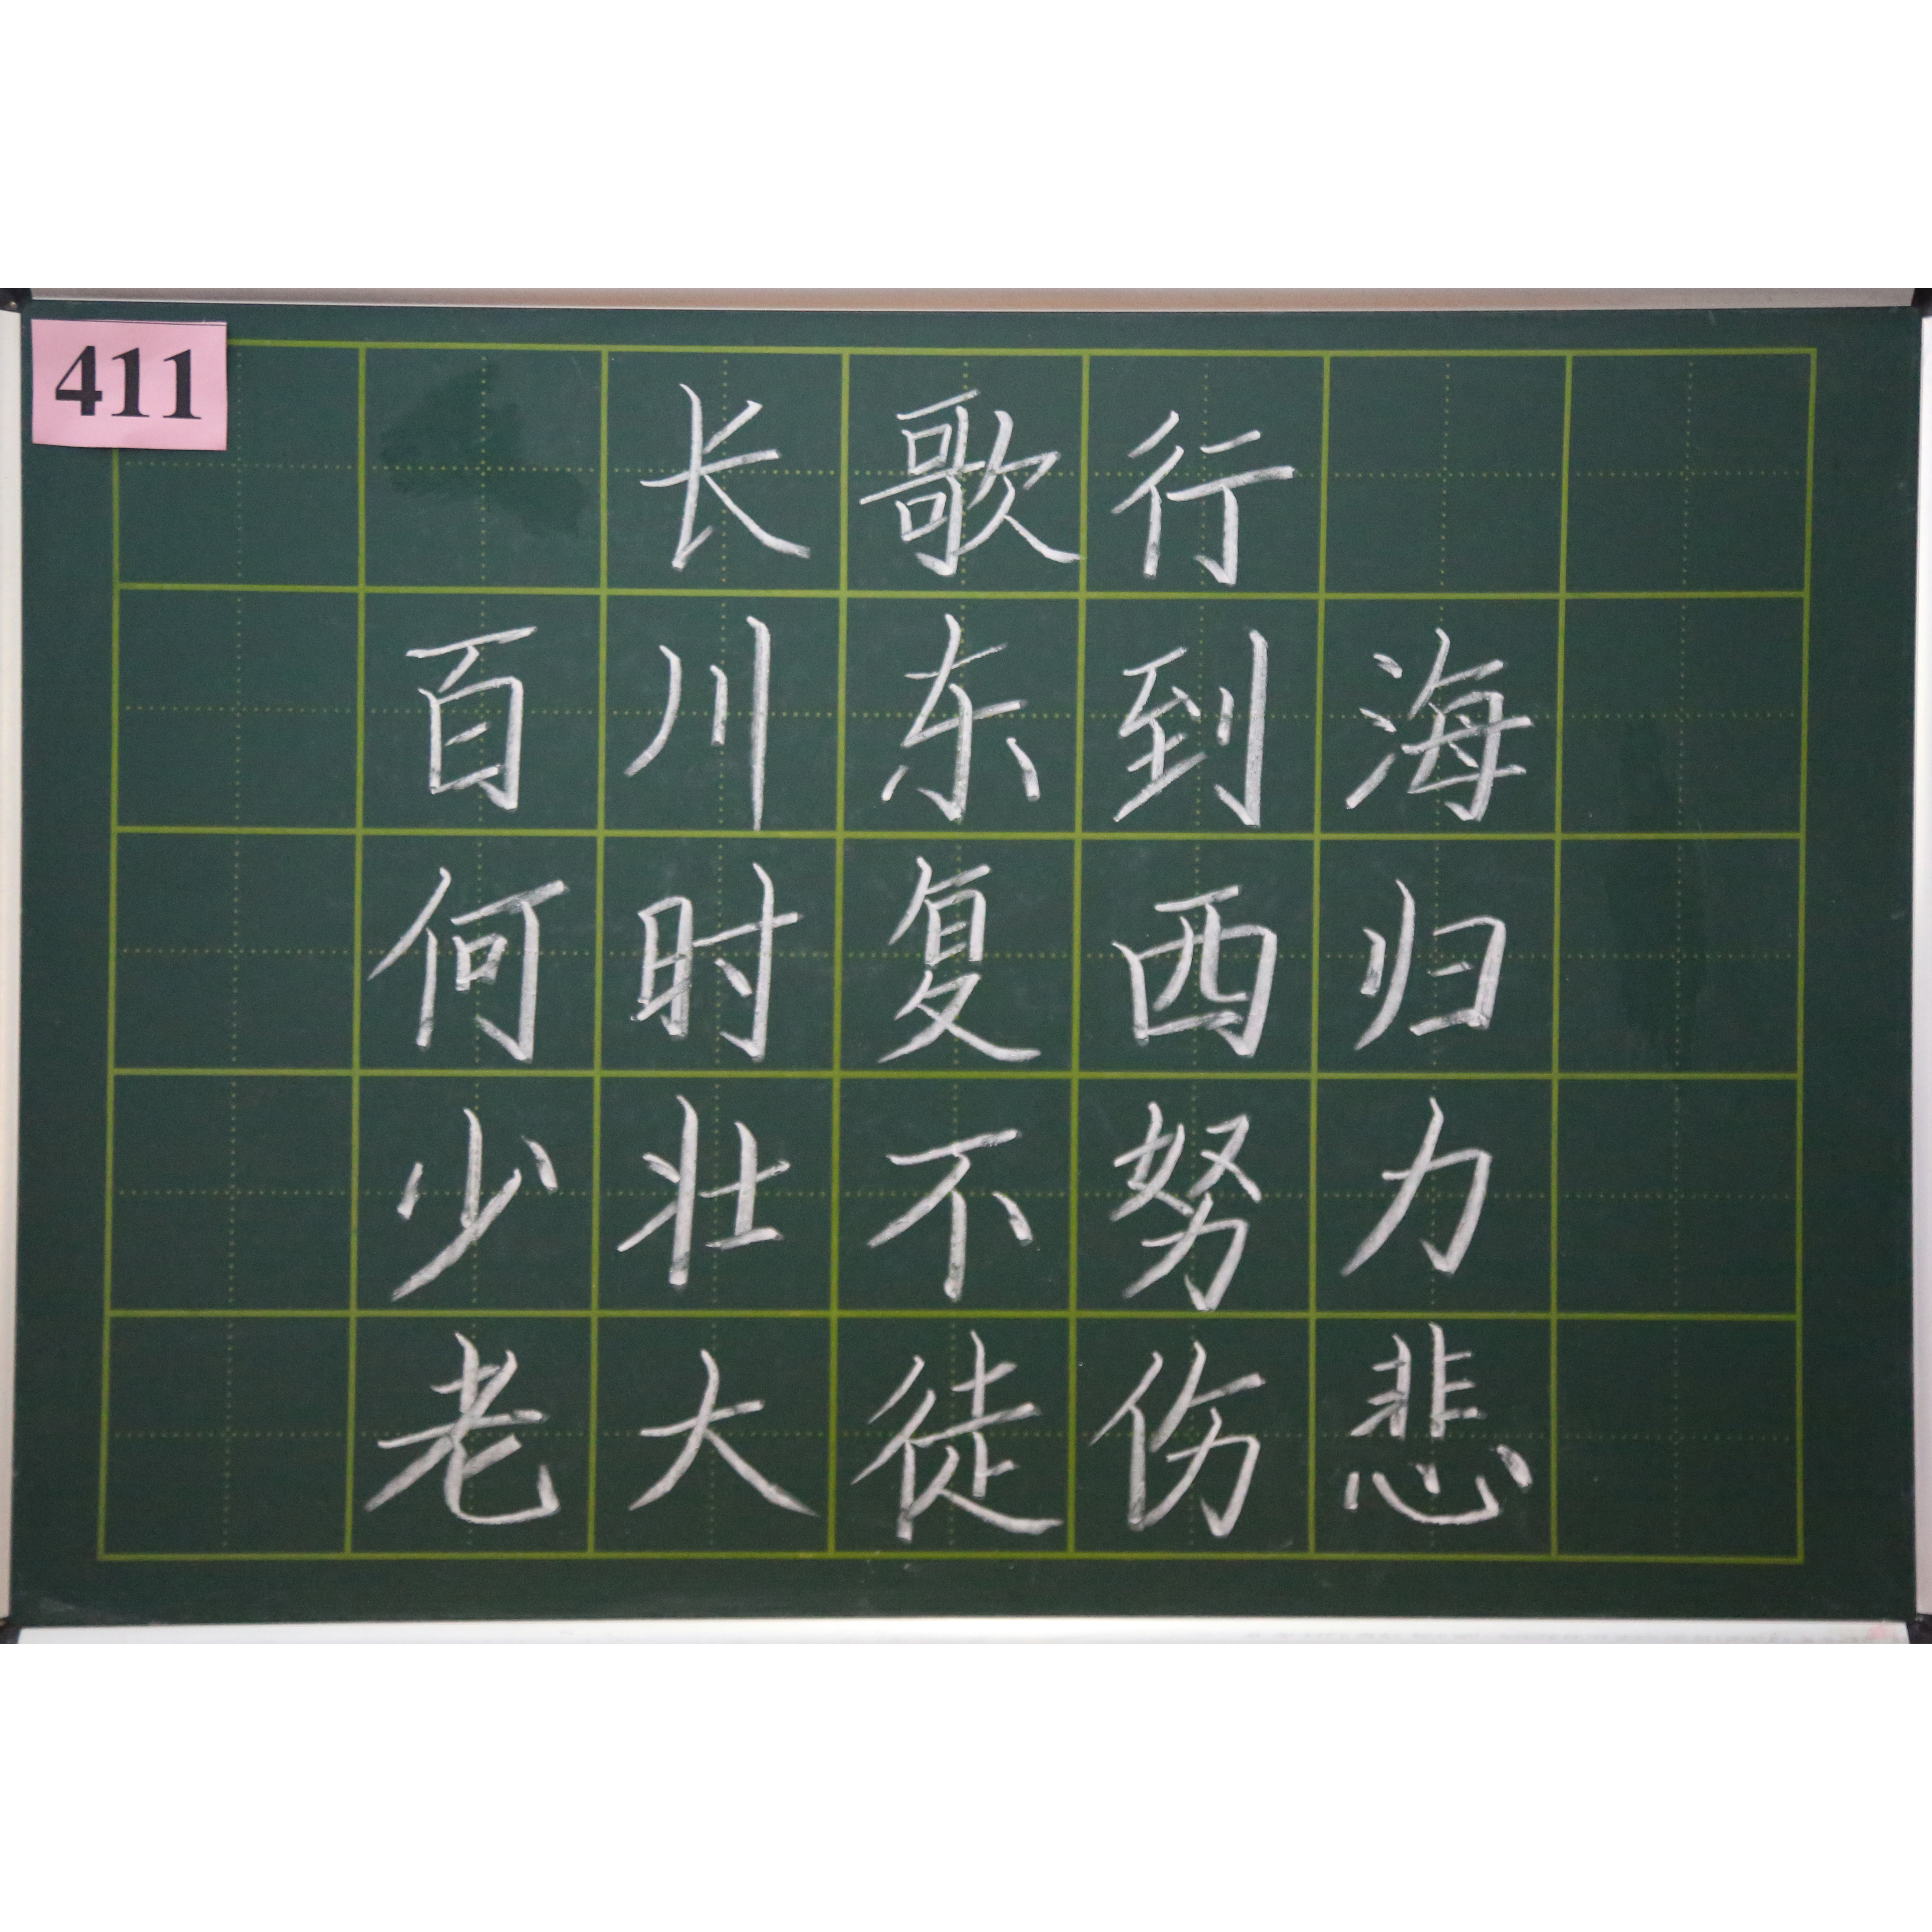 411
长歌行
百川东到海
何时复西归
少壮不努力
老大徒伤悲